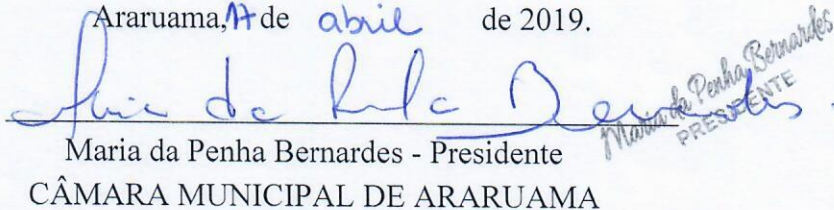 Araruama, 17 de abril de 2019.
Maria da Penha Bernardes
Maria da Penha Bernardes
PRESIDENTE
Maria da Penha Bernardes - Presidente
CÂMARA MUNICIPAL DE ARARUAMA